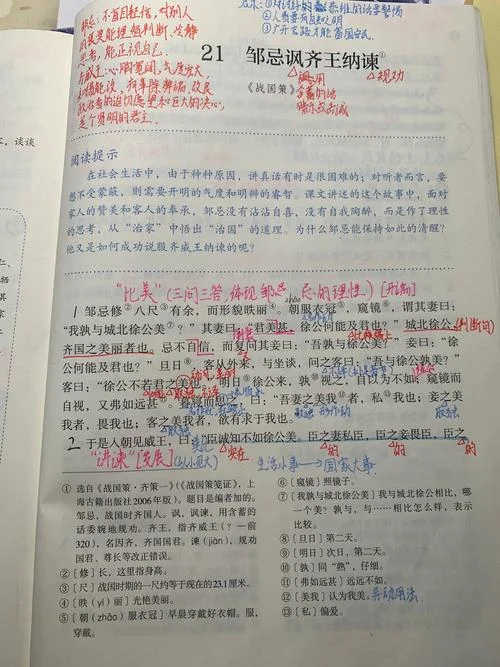 启示:
④人贵要有自知之明
③广开言路才能富国安民
邹忌:不盲目轻信,对别人
思考,能正视自己。
齐威王:心胸宽阔,气度宏大,
是个贤明的君主。
21 邹忌讽齐王纳谏①
讽用
含蓄的话
暗示或告诫
规劝
《战国策》
谈谈
阅读提示
在社会生活中,由于种种原因,讲真话有时是很困难的;对听者而言,要
想不受蒙蔽,则需要开明的气度和明辨的睿智。课文讲述的这个故事中,面对
家人的赞美和客人的奉承,邹忌没有沾沾自喜,没有自我陶醉,而是作了理性
的思考,从“治家”中悟出“治国”的道理。为什么邹忌能保持如此的清醒?
他又是如何成功说服齐威王纳谏的呢?
“比美”(三问三答,体现邹忌 的理性)[开端]
zhāo
1 邹忌修②八尺③有余,而形貌昳④丽。朝服衣冠⑤,窥镜⑥,谓其妻曰:
“我孰与城北徐公美⑦?”其妻曰:“君美甚,徐公何能及君也?”城北徐公,
判断句
齐国之美丽者也。忌不自信,而复问其妾曰:“吾孰与徐公美?”妾曰:“徐
公何能及君也?”旦日⑧,客从外来,与坐谈,问之客曰:“吾与徐公孰美?”
客曰:“徐公不若君之美也。”明日⑨徐公来,孰⑩视之,自以为不如;窥镜而
自视,又弗如远甚⑪。暮寝而思之,曰:“吾妻之美我⑫者,私⑬我也;妾之美
我者,畏我也;客之美我者,欲有求于我也。”
2 于是入朝见威王,曰:“臣诚知不如徐公美。臣之妻私臣,臣之妾畏臣,臣之
“讲谏”[发展](从小见大)
实在
的
的
的
生活小事→国家大事
① 选自《战国策·齐策一》(《战国策笺证》,上
海古籍出版社2006年版)。题目是编者加的。
邹忌,战国时齐国人。讽,讽谏,用含蓄的
话委婉地规劝。齐王,指齐威王(?一前
320),名因齐,齐国国君。谏(jiàn),规劝
国君、尊长等改正错误。
②〔修〕长,这里指身高。
③〔尺〕战国时期的一尺约等于现在的23.1厘米。
④〔昳(yì)丽〕光艳美丽。
⑤〔朝(zhāo)服衣冠〕早晨穿戴好衣帽。服,
穿戴。
⑥〔窥镜〕照镜子。
⑦〔我孰与城北徐公美〕我与城北徐公相比,哪
一个美?孰与,与……相比怎么样,表示
比较。
⑧〔旦日〕第二天。
⑨〔明日〕次日,第二天。
⑩〔孰〕同“熟”,仔细。
⑪〔弗如远甚〕远远不如。
⑫〔美我〕认为我美。 意动用法
⑬〔私〕偏爱。